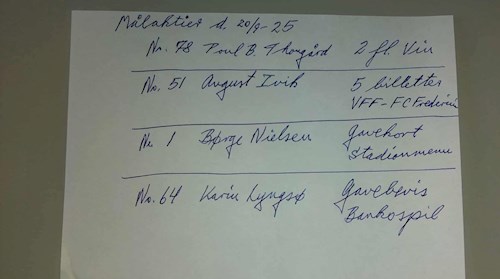 Målaktier d. 20/9-25
Nr. 78 Poul B. Thorgård 2 fl. Vin
No. 51 August Ivik 5 billetter
VFF-FC Fredericia
Nr 1 Børge Nielsen Gavekort
Stadionmenu
No. 64 Karin Lyngsø Gavebevis
Bankospil